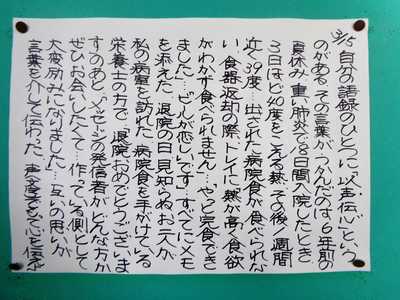 自分の語録のひとつに「以言伝心」という
のがある その言葉がうかんだのは6年前の
夏休み…重い肺炎で8日間入院したとき
3日ほど40度をこえる熱…その後1週間
近く39度…出された病院食が食べられな
い…食器返却の際トレイに「熱が高く食欲
がわかず食べられません…やっと完食でき
ました…ビールが恋しいです」すべてにメモ
を添えた 退院の日 見知らぬお二人が
私の病室を訪れた 病院食を手がけている
栄養士の方で「退院おめでとうございま
す」のあと「メッセージの発信者がどんな方か
ぜひお会いしたくて…作っている側として
大変励みになりました」…互いの思いが
言葉を介して伝わった